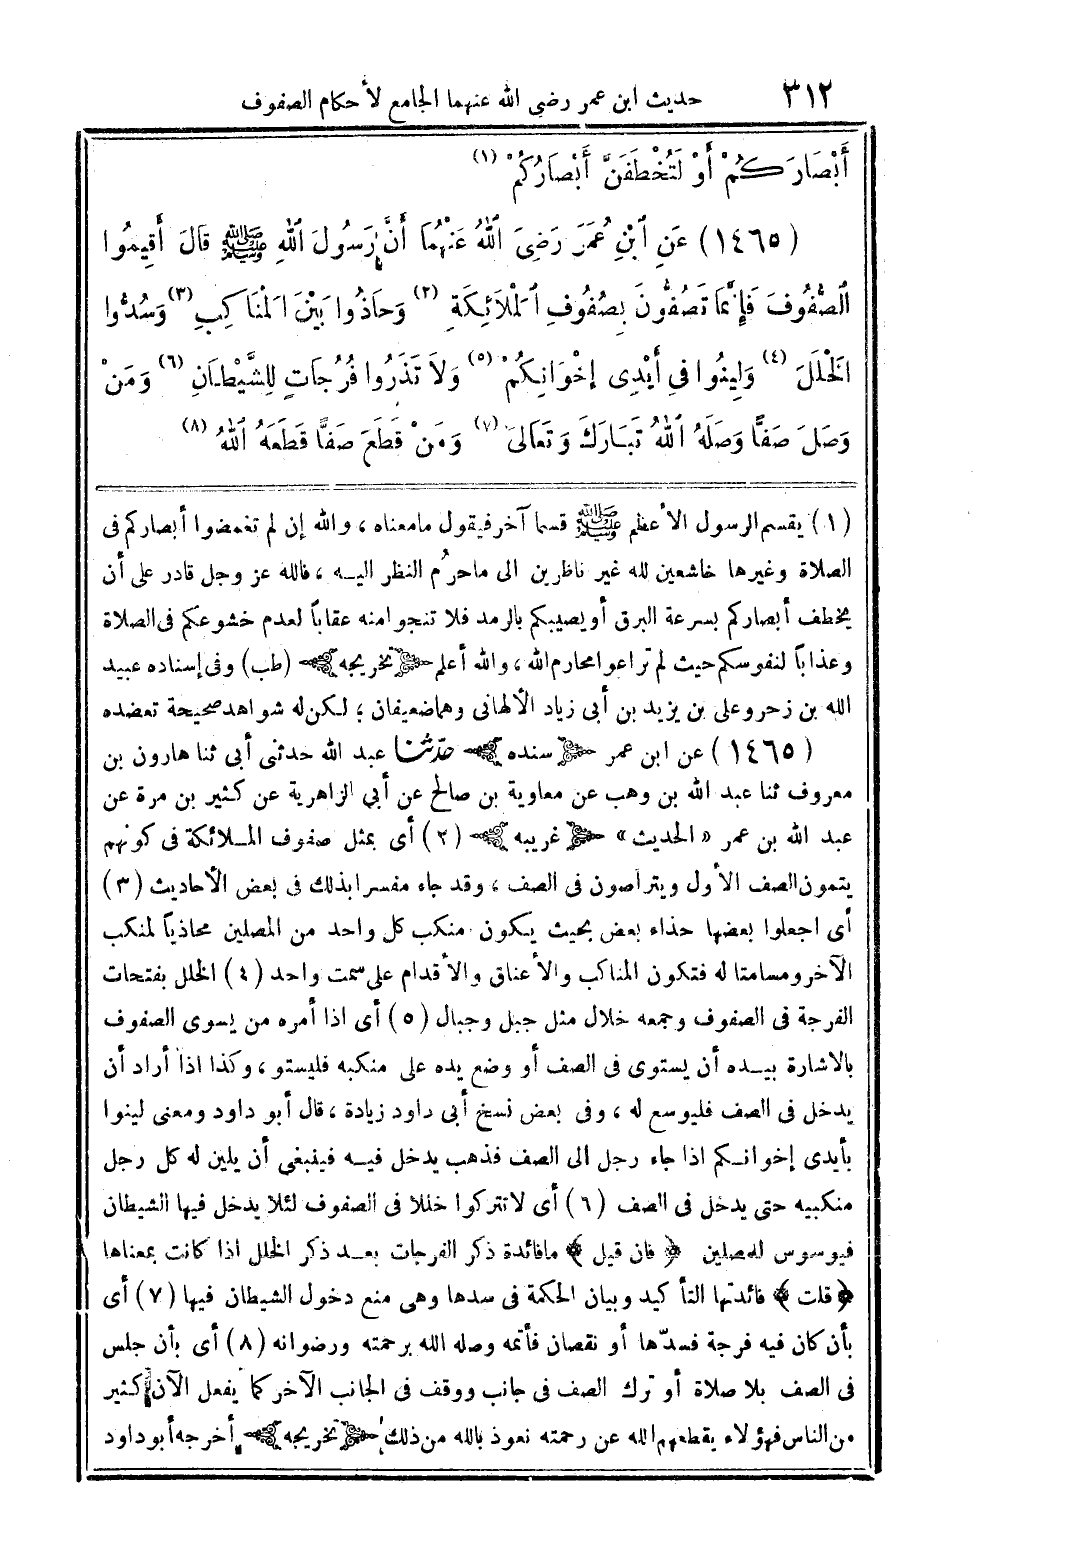 ٣١٢
حديث ابن عمر رضى الله عنهما الجامع لأحكام الصفوف
أَبْصَارَكُمْ أَوْ لَتُخْطَفَنَّ أَبْصَارُكُمْ (١)
(١٤٦٥) عَنِ ٱبْنِ عُمَرَ رَضِىَ ٱللهُ عَنْهُمَا أَنَّ رَسُولَ ٱللهِ ﷺ قَالَ أَقِيمُوا
ٱلصُّفُوفَ فَإِنَّمَا تَصُفُّونَ بِصُفُوفِ ٱلْمَلَائِكَةِ (٢) وَحَاذُوا بَيْنَ ٱلْمَنَاكِبِ (٣) وَسُدُّوا
الْخَلَلَ (٤) وَلِينُوا فِى أَيْدِى إِخْوَانِكُمْ (٥) وَلاَ تَذَرُوا فُرُجَاتٍ لِلشَّيْطَانِ (٦) وَمَنْ
وَصَلَ صَفًّا وَصَلَهُ ٱللهُ تَبَارَكَ وَتَعَالَى (٧) وَمَنْ قَطَعَ صَفًّا قَطَعَهُ ٱللهُ (٨)
(١) يقسم الرسول الأعظم ﷺ قسما آخر فيقول مامعناه ، والله إن لم تغمضوا أبصاركم فى
الصلاة وغيرها خاشعين لله غير ناظرين الى ماحرُم النظر اليه ، فالله عز وجل قادر على أن
يخطف أبصاركم بسرعة البرق أو يصيبكم بالرمد فلا تنجوا منه عقاباً لعدم خشوعكم فى الصلاة
وعذاباً لنفوسكم حيث لم تراعوا محارم الله ، والله أعلم ﴿ تخريجه ﴾ (طب) وفى إسناده عبيد
الله بن زحر وعلى بن يزيد بن أبى زياد الألهانى وهما ضعيفان ؛ لكن له شواهد صحيحة تعضده
(١٤٦٥) عن ابن عمر ﴿ سنده ﴾ حدّثنا عبد الله حدثنى أبى ثنا هارون بن
معروف ثنا عبد الله بن وهب عن معاوية بن صالح عن أبي الزاهرية عن كثير بن مرة عن
عبد الله بن عمر «الحديث» ﴿ غريبه ﴾ (٢) أى بمثل صفوف الملائكة فى كونهم
يتمون الصف الأول ويتراصون فى الصف ، وقد جاء مفسرا بذلك فى بعض الأحاديث (٣)
أى اجعلوا بعضها حذاء بعض بحيث يكون منكب كل واحد من المصلين محاذياً لمنكب
الآخر ومسامتا له فتكون المناكب والأعناق والأقدام على سمت واحد (٤) الخلل بفتحات
الفرجة فى الصفوف وجمعه خلال مثل جبل وجبال (٥) أى اذا أمره من يسوى الصفوف
بالاشارة بيده أن يستوى فى الصف أو وضع يده على منكبه فليستو ، وكذا اذا أراد أن
يدخل فى الصف فليوسع له ، وفى بعض نسخ أبى داود زيادة ، قال أبو داود ومعنى لينوا
بأيدى إخوانكم اذا جاء رجل الى الصف فذهب يدخل فيه فينبغى أن يلين له كل رجل
منكبيه حتى يدخل فى الصف (٦) أى لاتتركوا خللا فى الصفوف لئلا يدخل فيها الشيطان
فيوسوس للمصلين ﴿ فان قيل ﴾ مافائدة ذكر الفرجات بعد ذكر الخلل اذا كانت بمعناها
﴿ قلت ﴾ فائدتها التأكيد وبيان الحكمة فى سدها وهى منع دخول الشيطان فيها (٧) أى
بأن كان فيه فرجة فسدّها أو نقصان فأتمه وصله الله برحمته ورضوانه (٨) أى بأن جلس
فى الصف بلا صلاة أو ترك الصف فى جانب ووقف فى الجانب الآخر كما يفعل الآن كثير
من الناس فهؤلاء يقطعهم الله عن رحمته نعوذ بالله من ذلك ﴿ تخريجه ﴾ أخرجه أبو داود